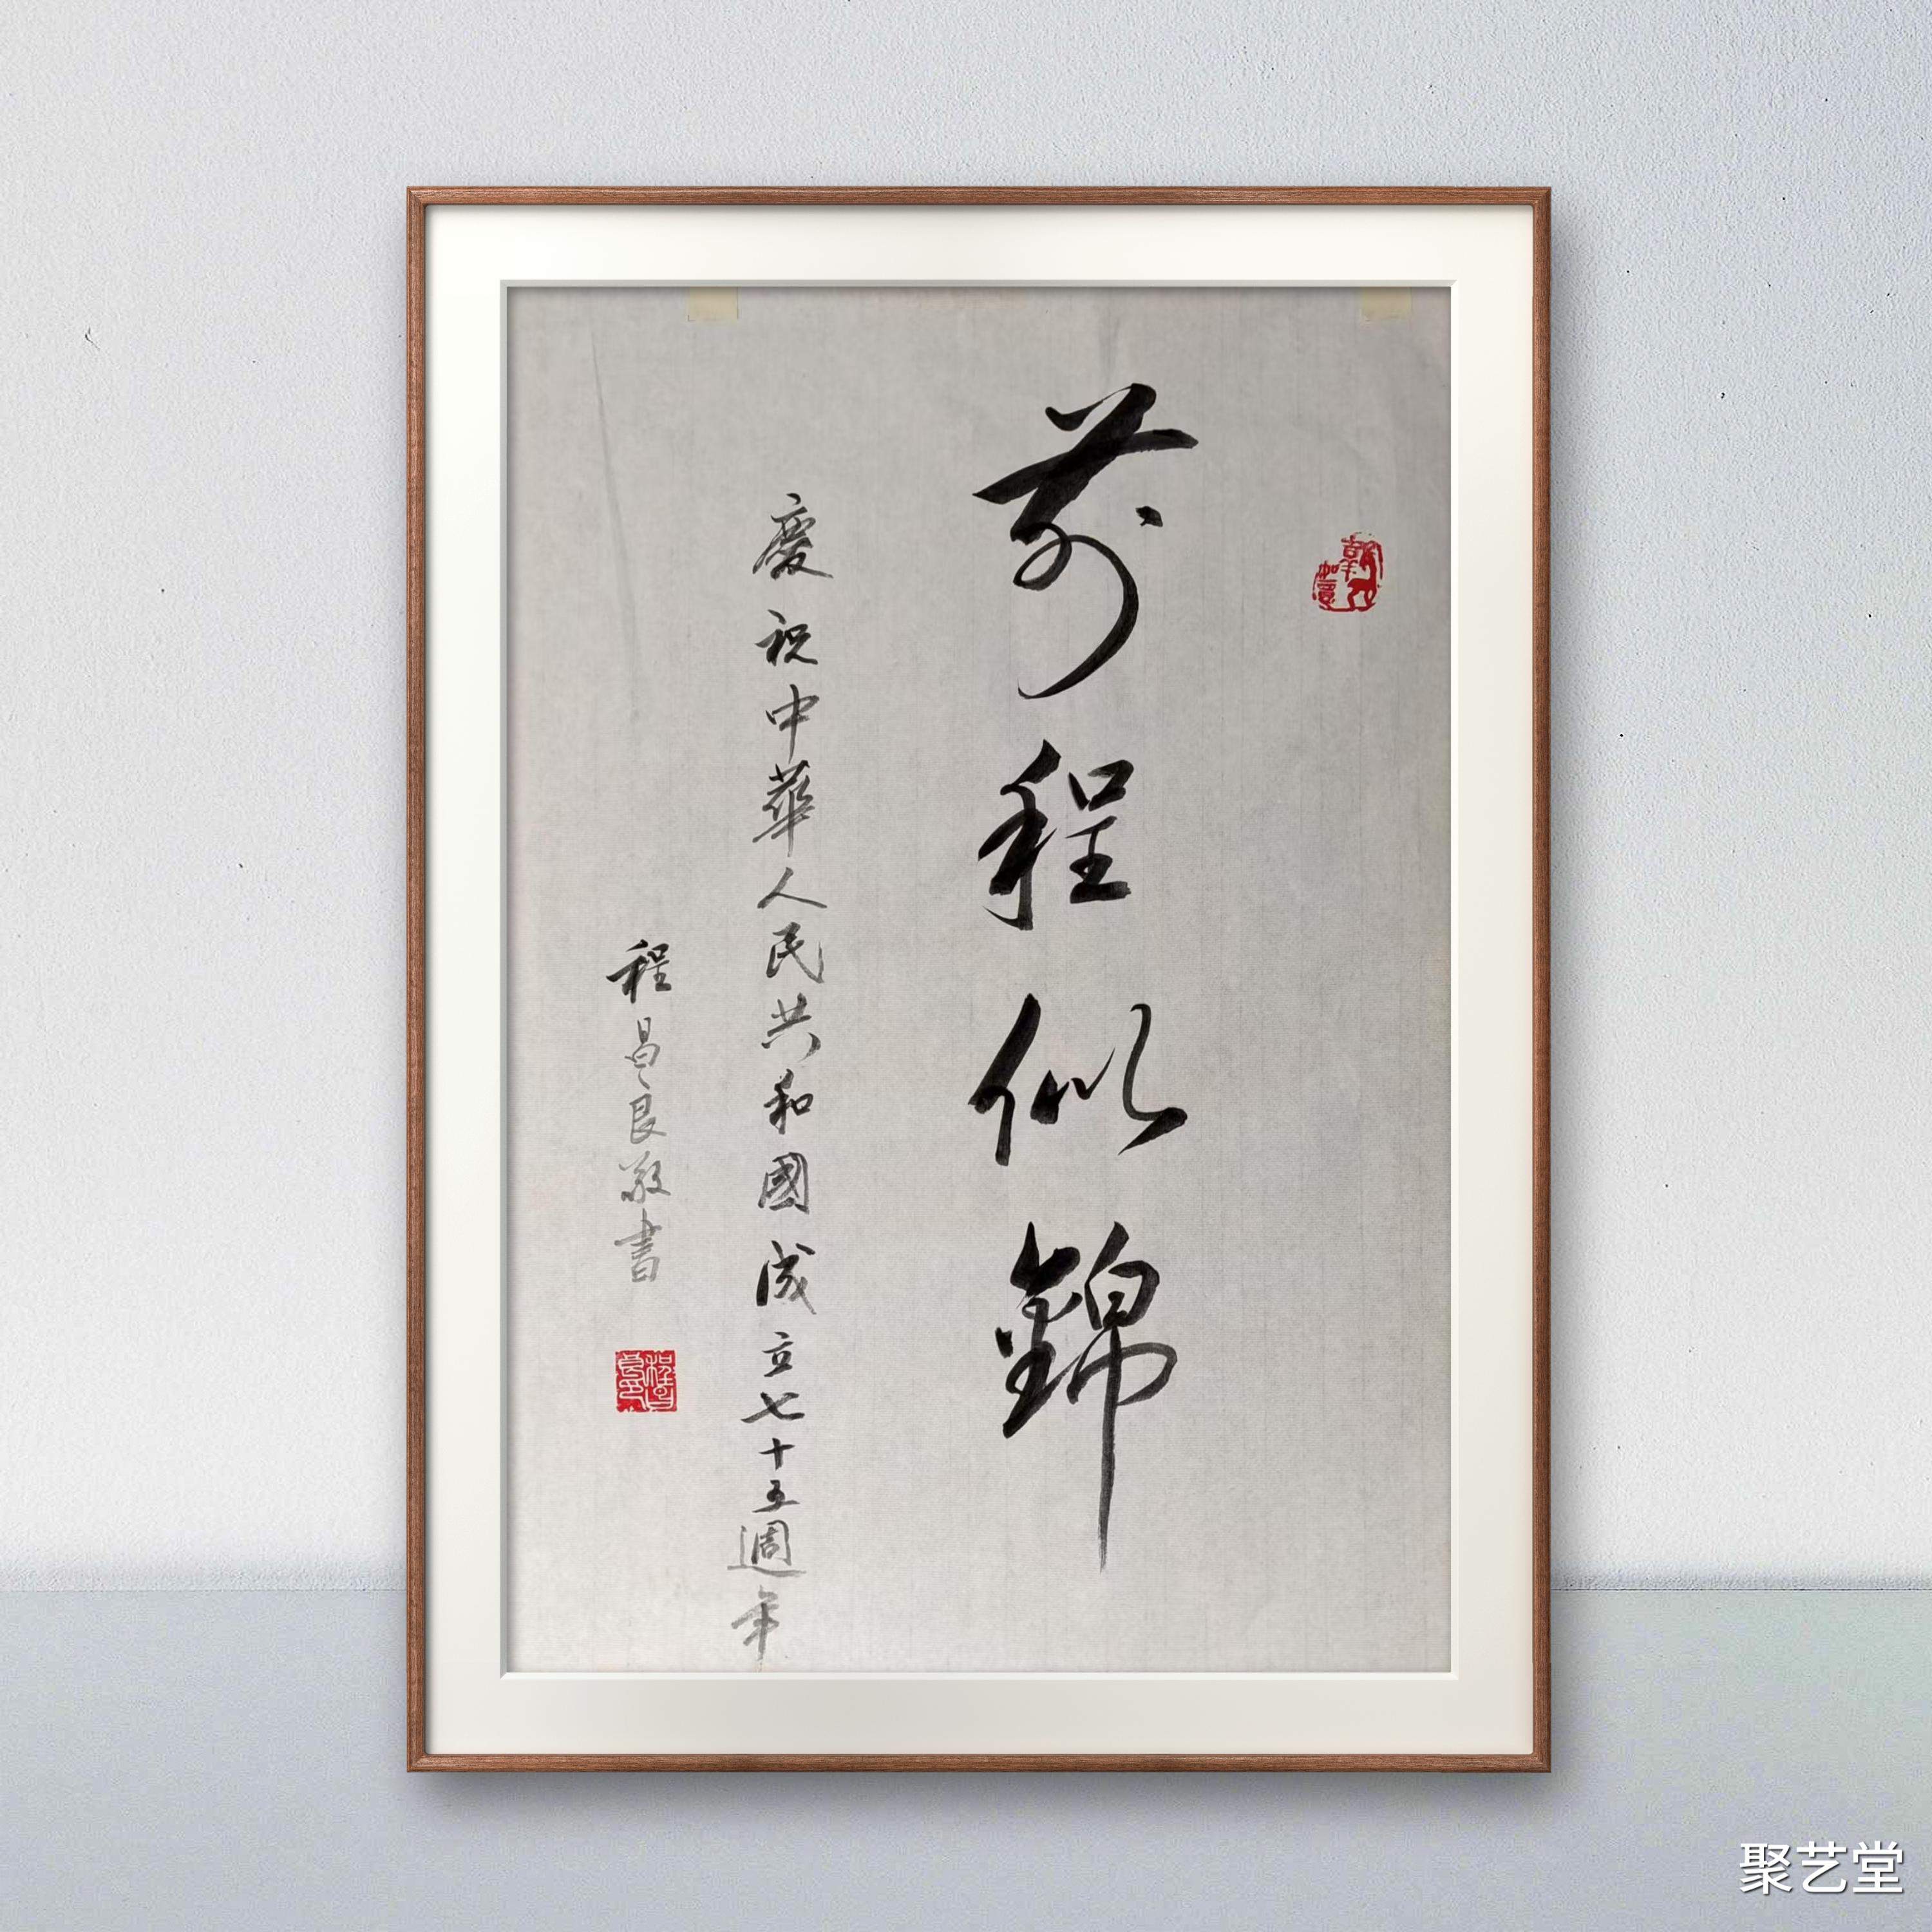 前程似錦
慶祝中華人民共和國成立七十五週年
程昌良敬書
聚艺堂